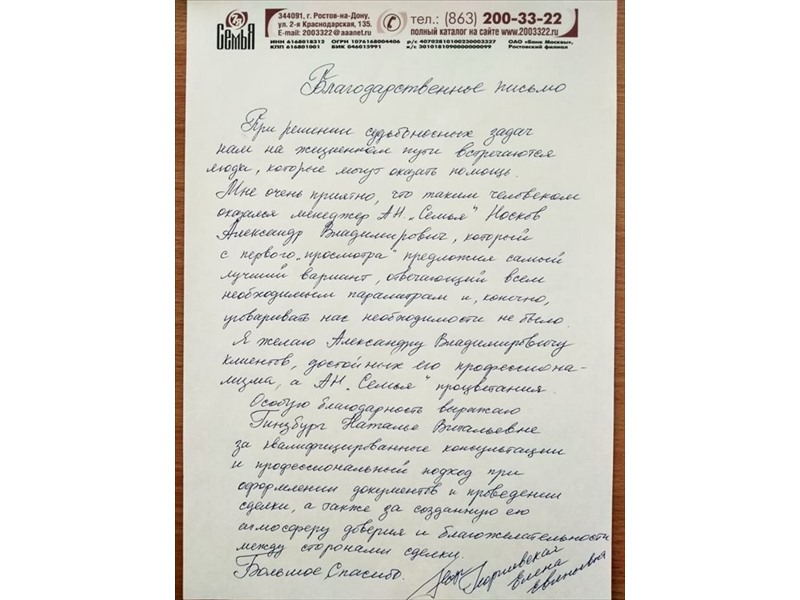 Семья
344091, г. Ростов-на-Дону,
ул. 2-я Краснодарская, 135.
E-mail: 2003322@aaanet.ru
тел.: (863) 200-33-22
полный каталог на сайте www.2003322.ru
ИНН 6168018312 ОГРН 1076168004406 р/с 40702810100230003227 ОАО «Банк Москвы»,
КПП 616801001 БИК 046015991 к/с 30101810900000000099 Ростовский филиал
Благодарственное письмо
При решении судьбоносных задач
нам на жизненном пути встречаются
люди, которые могут оказать помощь.
Мне очень приятно, что таким человеком
оказался менеджер АН „Семья" Носков
Александр Владимирович, который
с первого „просмотра" предложил самый
лучший вариант, отвечающий всем
необходимым параметрам и, конечно,
уговаривать нас необходимости не было.
Я желаю Александру Владимировичу
клиентов, достойных его профессиона-
лизма, а АН „Семья" процветания.
Особую благодарность выражаю
Гинзбург Наталье Витальевне
за квалифицированные консультации
и профессиональный подход при
оформлении документов и проведении
сделки, а также за созданную ею
атмосферу доверия и благожелательности
между сторонами сделки.
Большое Спасибо.
Елена